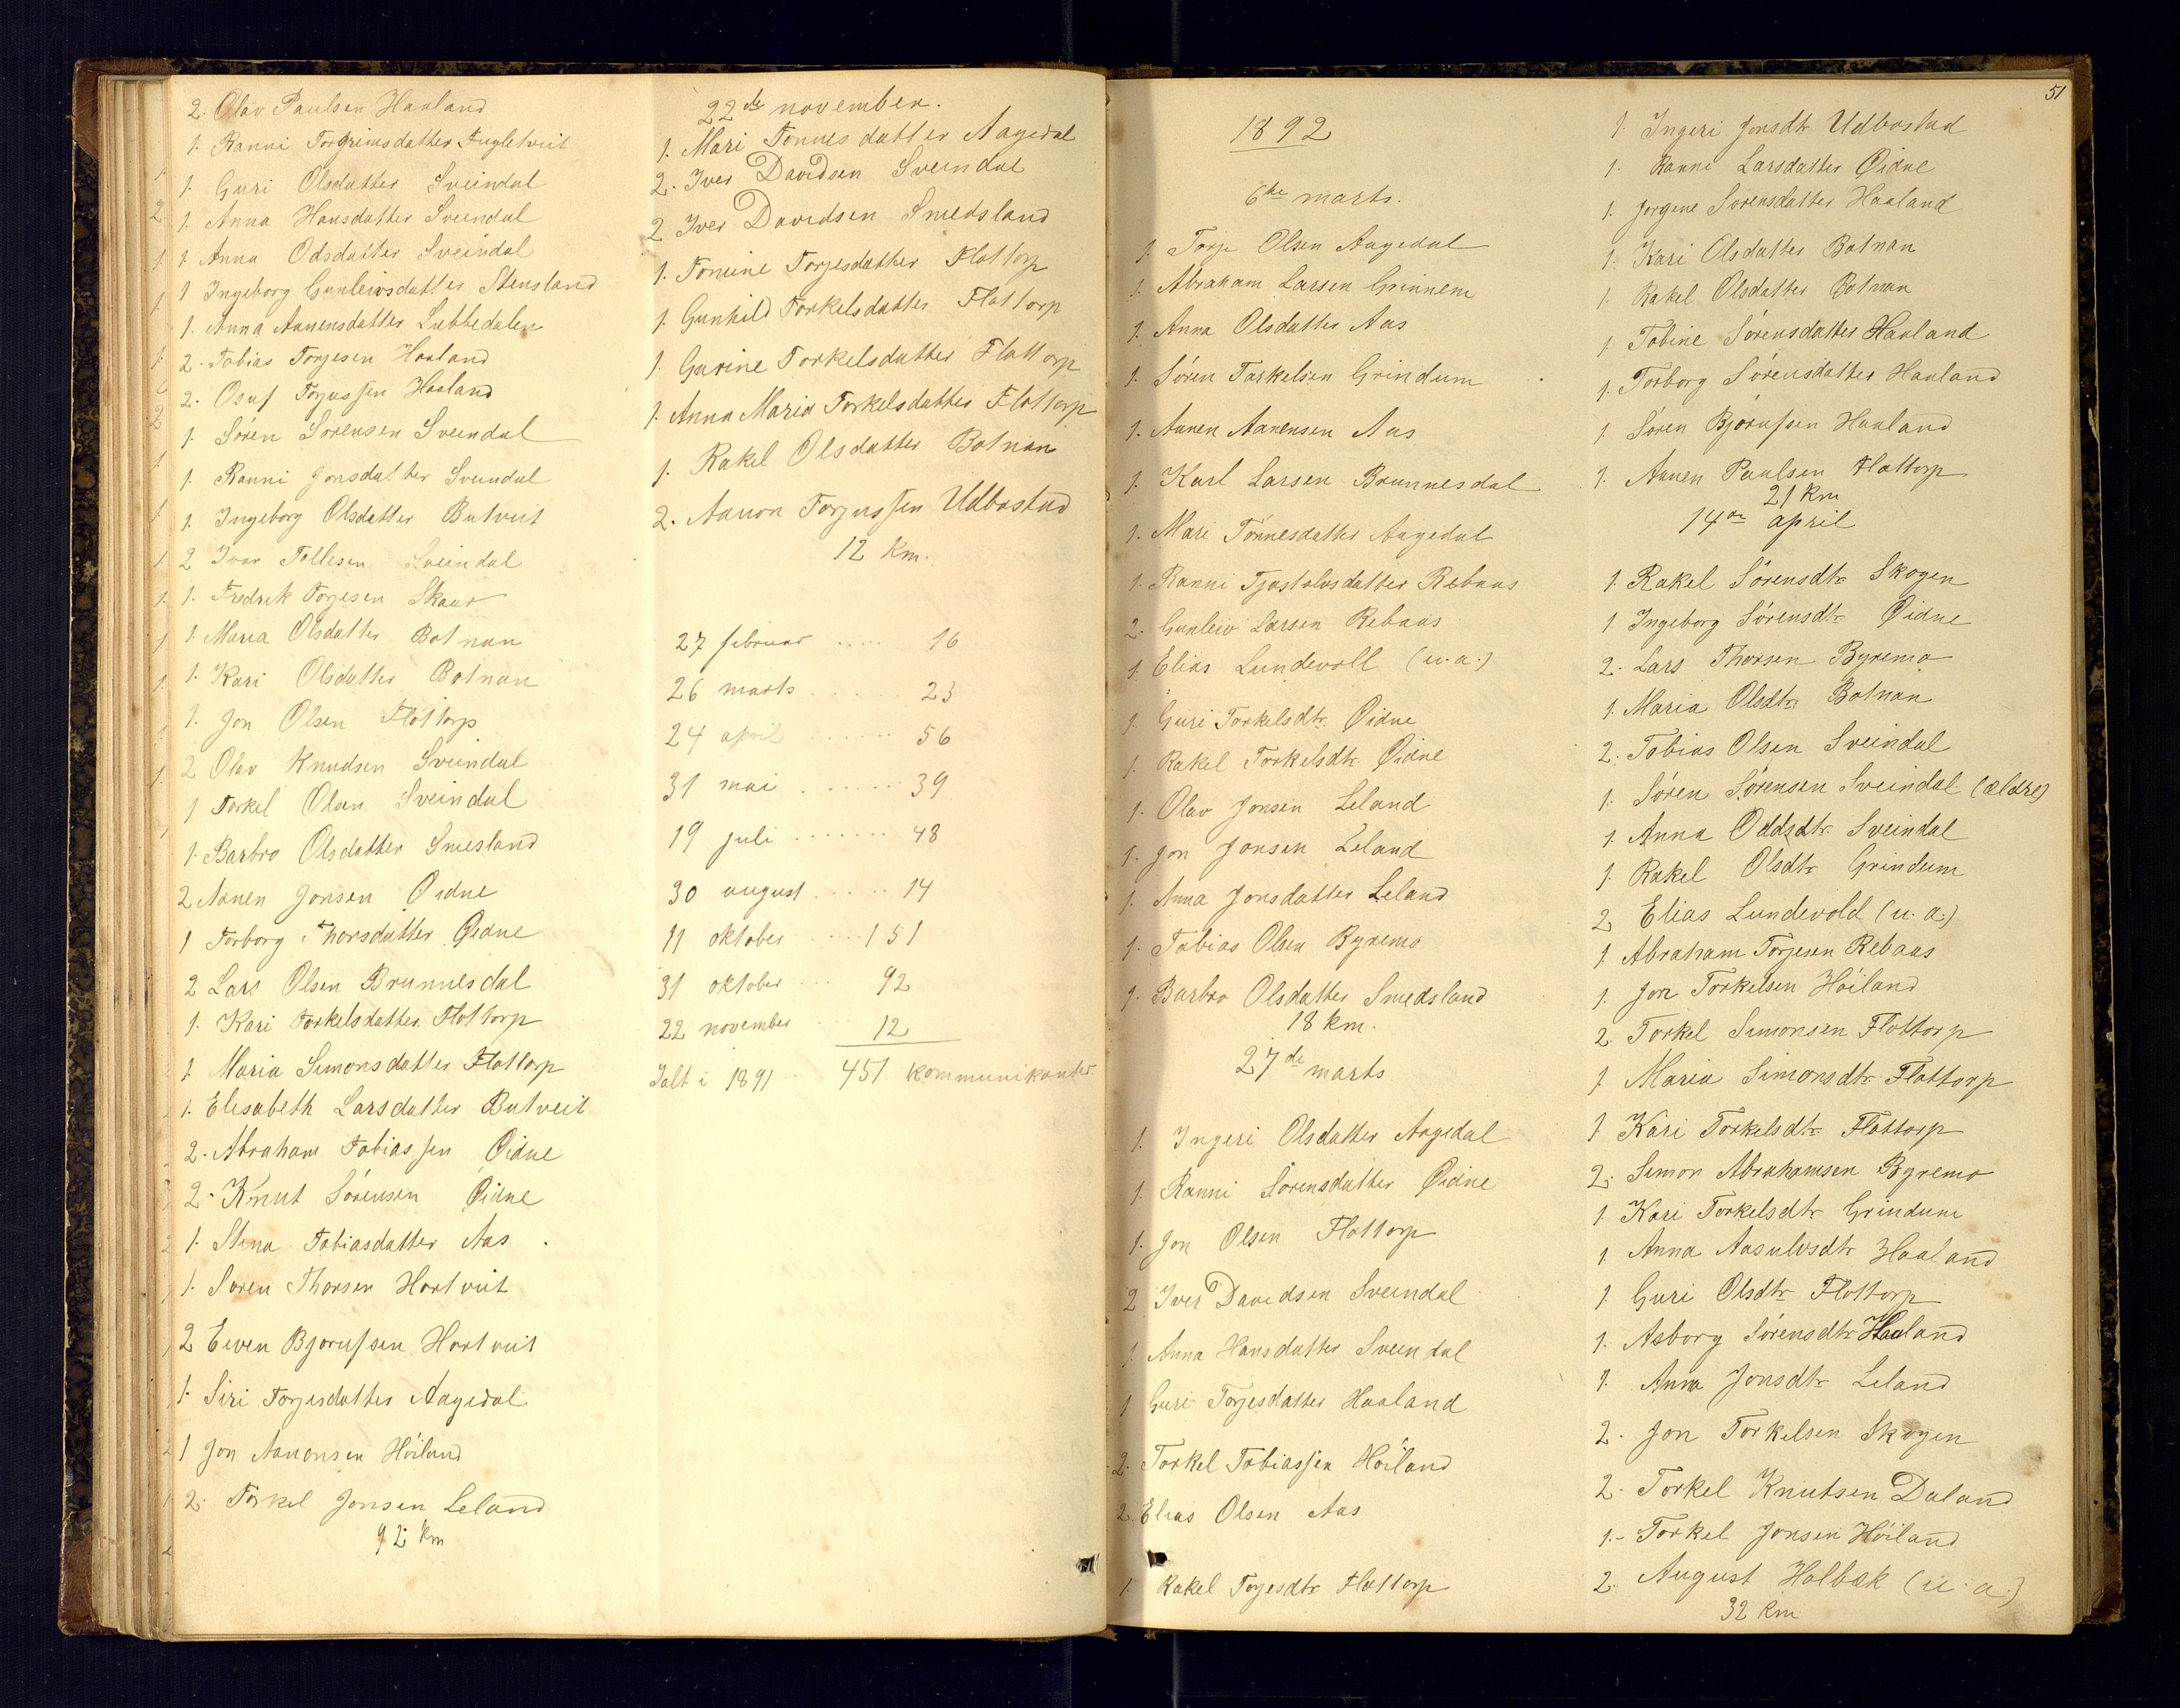 2. Olav Paulsen Haaland
1. Ranni Torgrimsdatter Fugletveit
1. Guri Olsdatter Sveindal
1. Anna Hansdatter Sveindal
1. Anna Odsdatter Sveindal
1 Ingeborg Gunleivsdatter Stensland
1. Anna Aanensdatter Lubbedalen
2. Tobias Torjesen Haaland
2. Osuf Torjussen Haaland
1. Sören Sörensen Sveindal
1. Ranni Jonsdatter Sveindal
1. Ingeborg Olsdatter Butveit
2 Ivar Tollesen Sveindal
1. Fredrik Torjesen Skaar
1. Maria Olsdatter Botnan
1. Kari Olsdatter Botnan
1. Jon Olsen Flottorp
2 Olav Knudsen Sveindal
1 Torkel Olsen Sveindal
1. Barbro Olsdatter Smesland
2 Aanen Jonsen Øidne
1 Torborg Thorsdatter Øidne
2 Lars Olsen Brunnesdal
1. Kari Torkelsdatter Flottorp
1. Maria Simonsdatter Flottorp
1. Elisabeth Larsdatter Butveit
2. Abraham Tobiassen Øidne
2. Knut Sörensen Øidne
1. Stina Tobiasdatter Aas
1. Sören Thorsen Hortveit
2 Even Bjorufsen Hortveit
1. Siri Torjesdatter Aagedal
1 Jon Aanonsen Höiland
2. Torkel Jonsen Leland
92 km
22de november.
1. Mari Tönnesdatter Aagedal
2. Iver Davidsen Sveindal
2 Iver Davidsen Smedsland
1. Tomine Torjesdatter Flottorp
1. Gunhild Torkelsdatter Flottorp
1. Gurine Torkelsdatter Flottorp
1. Anna Maria Torkelsdatter Flottorp
1. Rakel Olsdatter Botnan
2. Aanon Torjussen Udbostad
12 km.
27 februar ..... 16
26 marts ...... 23
24 april ....... 56
31 mai ....... 39
19 juli ........ 48
30 august ..... 14
11 oktober .... 151
31 oktober ... 92
22 november ... 12
Ialt i 1891 .. 451 kommunikanter
51
1892
6te marts.
1. Torje Olsen Aagedal
1. Abraham Larsen Grinnem
1. Anna Olsdatter Aas
1. Sören Torkelsen Grindum
1. Aanen Aanensen Aas
1. Karl Larsen Brunnesdal
1. Mari Tönnesdatter Aagedal
1. Ranni Tjostolvsdatter Rebaas
2. Gunleiv Larsen Rebaas
1 Elias Lundevoll (u.a.)
1. Guri Torkelsdtr Øidne
1. Rakel Torkelsdtr Øidne
1. Olav Jonsen Leland
1. Jon Jonsen Leland
1. Anna Jonsdatter Leland
1. Tobias Olsen Byremo
1. Barbro Olsdatter Smedsland
18 km.
27de marts
1. Ingeri Olsdatter Aagedal
1. Ranni Sörensdatter Øidne
1. Jon Olsen Flottorp
2 Iver Davidsen Sveindal
1 Anna Hansdatter Sveindal
1 Guri Torjesdatter Haaland
2. Torkel Tobiassen Höiland
2. Elias Olsen Aas
1. Rakel Torjesdtr Flottorp
1. Ingeri Jonsdtr Udbostad
1. Ranni Larsdatter Øidne
1. Jorgine Sörensdatter Haaland
1. Kari Olsdatter Botnan
1. Rakel Olsdatter Botnan
1 Tobine Sörensdatter Haaland
1. Torborg Sörensdatter Haaland
1. Sören Bjorufsen Haaland
1. Aanen Paulsen Flottorp
21 km
14de april
1. Rakel Sörensdtr Skogen
1. Ingeborg Sörensdtr Øidne
2. Lars Thorsen Byremo
1. Maria Olsdtr Botnan
2. Tobias Olsen Sveindal
1. Sören Sörensen Sveindal (ældre)
1. Anna Oddsdtr Sveindal
1. Rakel Olsdtr Grindum
2. Elias Lundevold (u.a.)
1 Abraham Torjesen Rebaas
1. Jon Torkelsen Höiland
2. Torkel Simonsen Flottorp
1 Maria Simonsdtr Flottorp
1 Kari Torkelsdtr Flottorp
2. Simon Abrahamsen Byremo
1. Kari Torkelsdtr Grindum
1 Anna Aasulvsdtr Haaland
1 Guri Olsdtr Flottorp
1. Asborg Sörensdtr Haaland
1. Anna Jonsdtr Leland
2. Jon Torkelsen Skogen
2. Torkel Knutsen Daland
1.- Torkel Jonsen Höiland
2. August Holbæk (u.a.)
32 km